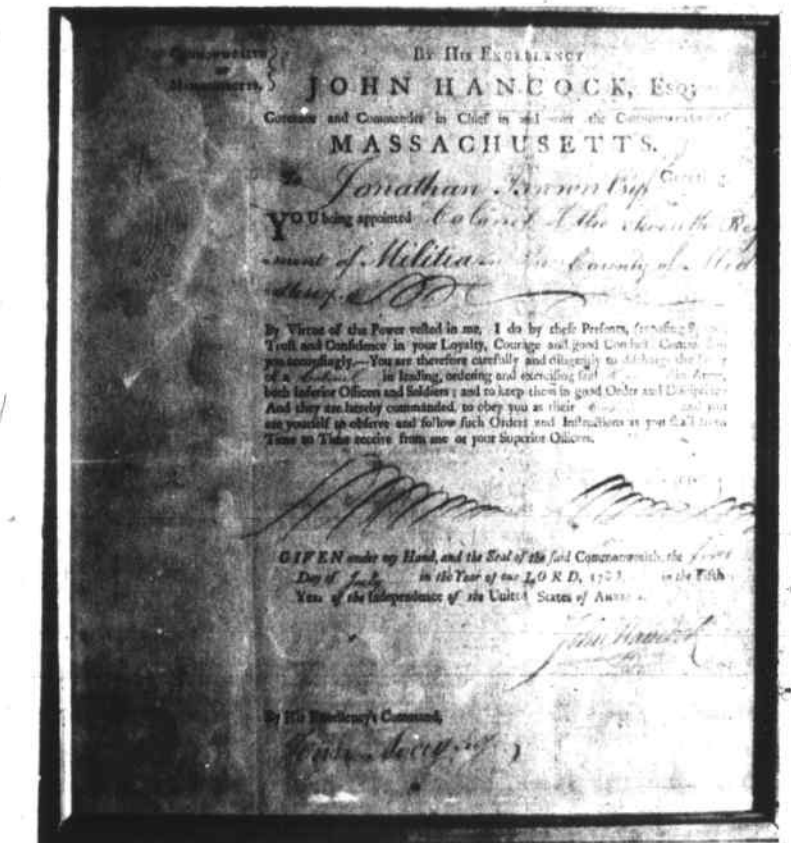 COMMONWEALTH
OF
MASSACHUSETTS,
BY HIS EXCELLENCY
JOHN HANCOCK, ESQ;
Governor and Commander in Chief in and over the Commonwealth of
MASSACHUSETTS.
To Jonathan Brown Esqr Greeting.
YOU being appointed Colonel of the Seventh Regi
-ment of Militia in the County of Mid
-dlesex
By Virtue of the Power vested in me, I do by these Presents, (reposing special
Trust and Confidence in your Loyalty, Courage and good Conduct) Commission
you accordingly.—You are therefore carefully and diligently to discharge the Duty
of a Colonel in leading, ordering and exercising said in Arms,
both Inferior Officers and Soldiers; and to keep them in good Order and Discipline
And they are hereby commanded, to obey you as their and you
are yourself to observe and follow such Orders and Instructions as you shall from
Time to Time receive from me or your Superior Officers.
GIVEN under my Hand, and the Seal of the said Commonwealth, the first
Day of July in the Year of our LORD, in the Fifth
Year of the Independence of the United States of America.
John Hancock
By His Excellency's Command,